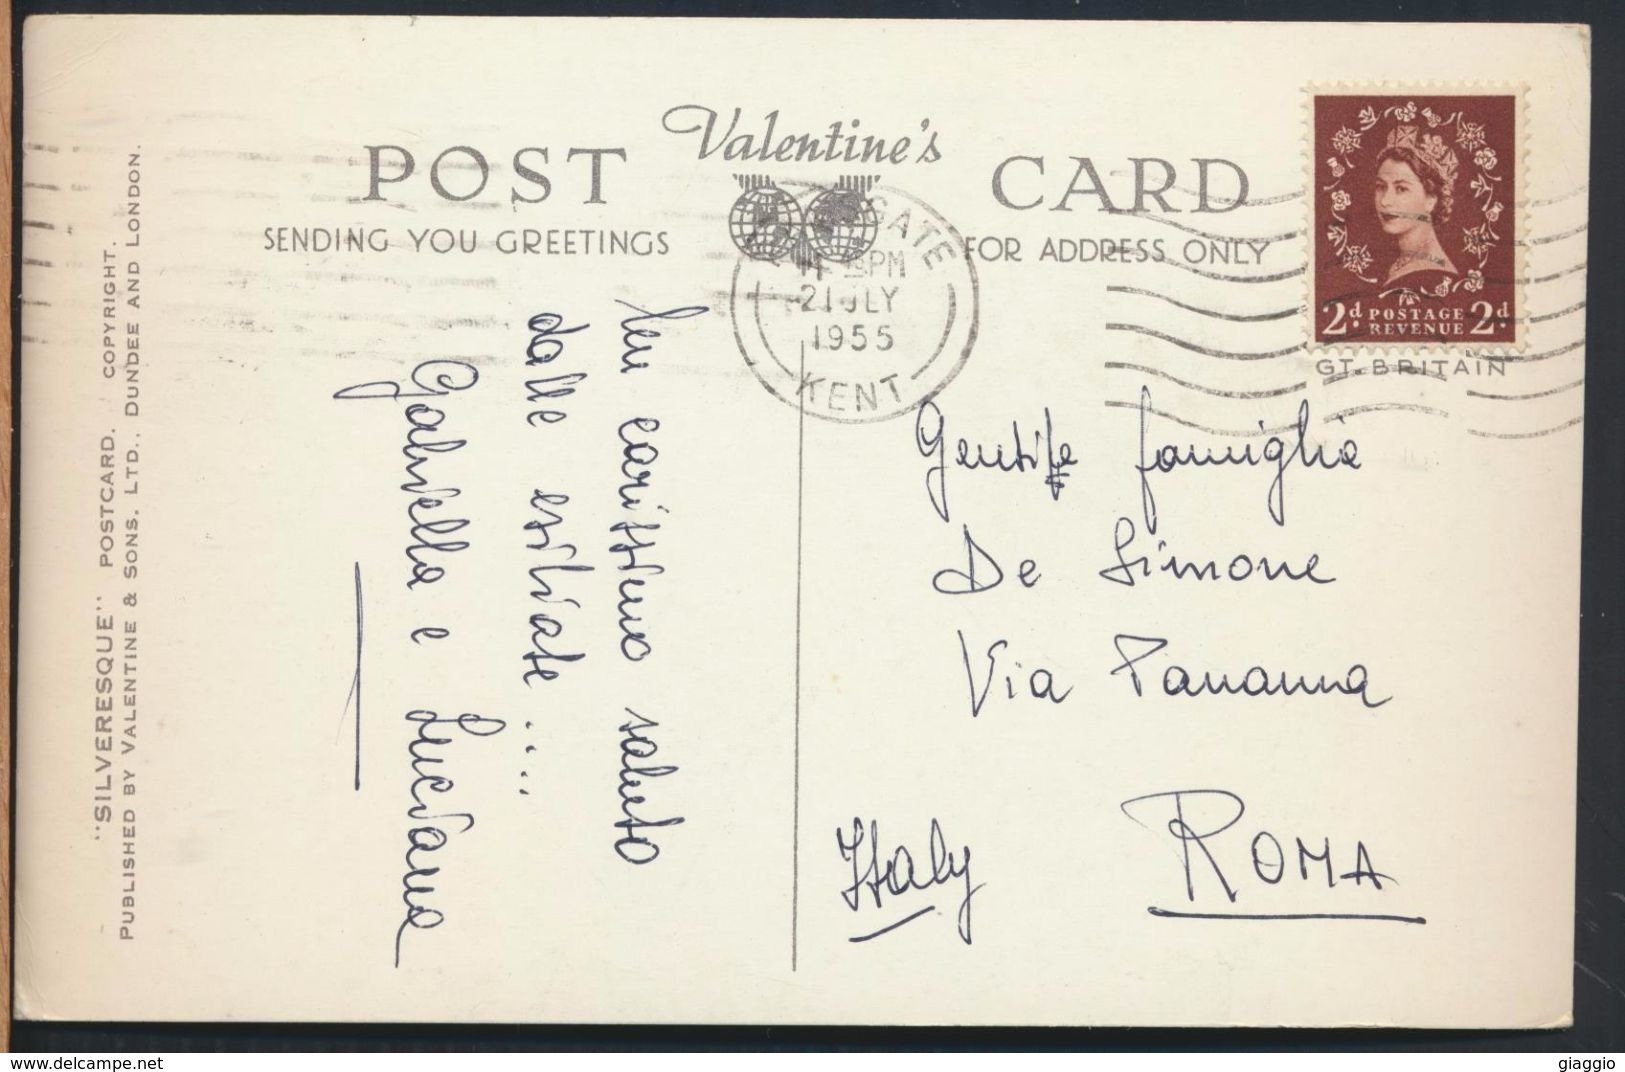 POST Valentine's CARD
SENDING YOU GREETINGS FOR ADDRESS ONLY
GATE
PM
21 JLY
1955
KENT
2d POSTAGE REVENUE 2d
GT. BRITAIN
"SILVERESQUE" POSTCARD. COPYRIGHT.
PUBLISHED BY VALENTINE & SONS, LTD., DUNDEE AND LONDON.
un carissimo saluto
dalle estivate....
Gabriella e Luciana
Gentile famiglia
De Simone
Via Panama
ROMA
Italy
giaggio